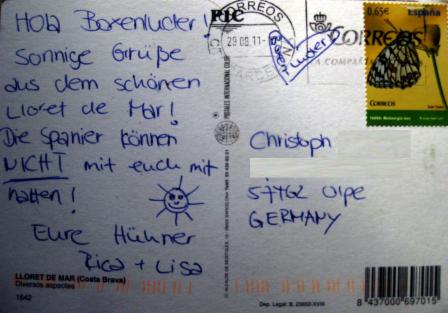 Hola Boxenluder!
Sonnige Grüße
aus dem schönen
Lloret de Mar!
Die Spanier können
NICHT mit euch mit
halten!
Eure Hühner
Rica + Lisa
LLORET DE MAR (Costa Brava)
Diversos aspectos
1642
CORREOS
29 08.11
CORREOS
0,65€
España
CORREOS
Christoph
57462 Olpe
GERMANY
Dep. Legal: B. 23652-XVIII
8 437000 697015